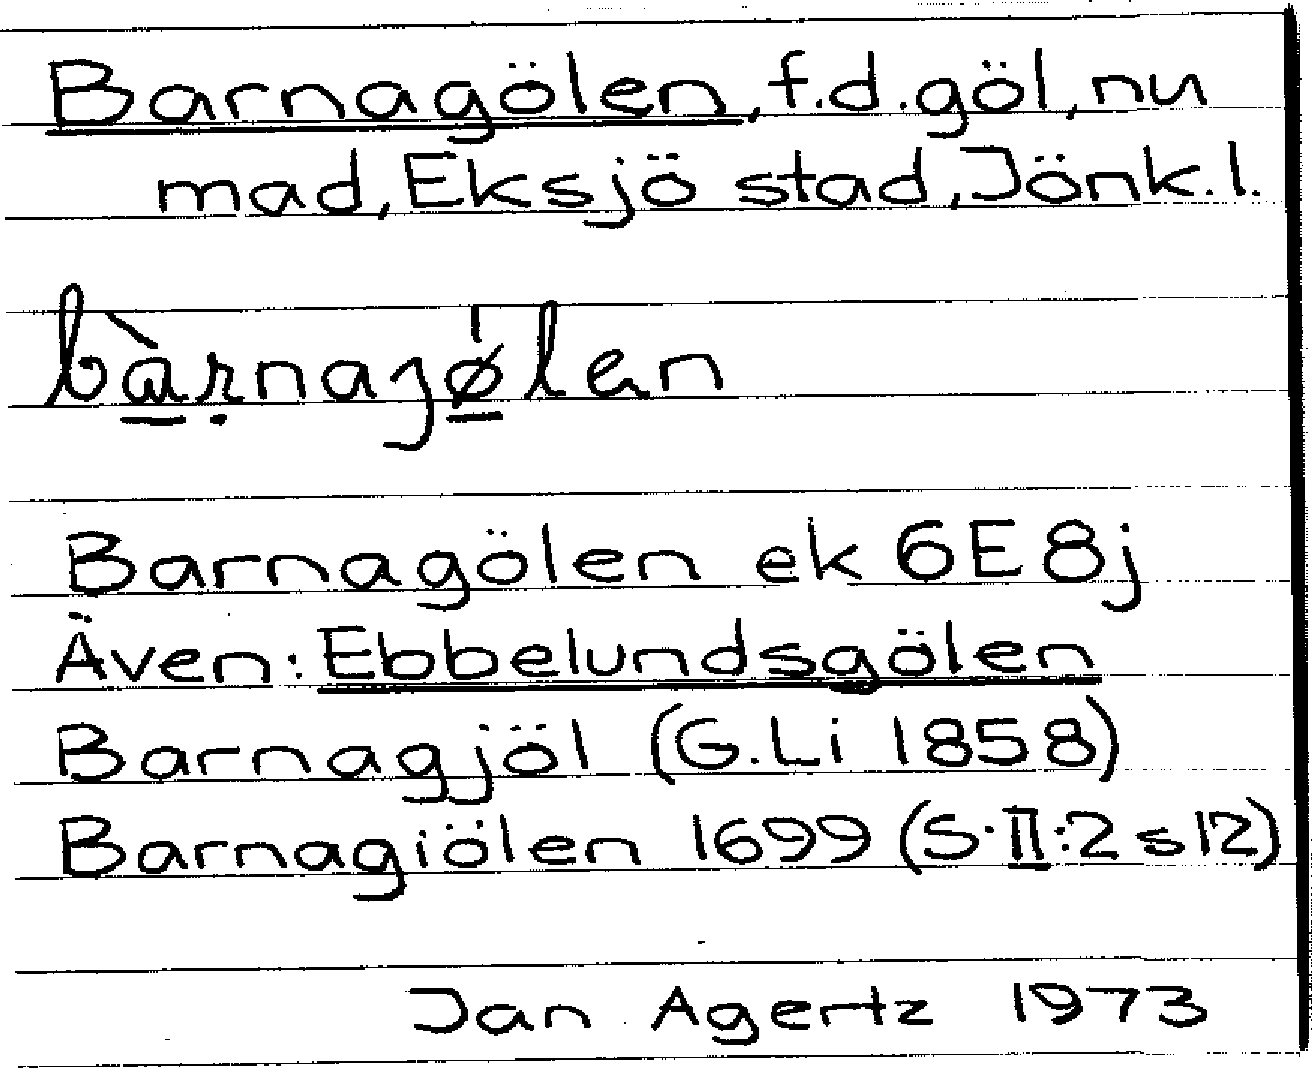 Barnagölen, f.d. göl, nu
mad, Eksjö stad, Jönk.l.
bàrnajølen
Barnagölen ek 6E8j
Även: Ebbelundsgölen
Barnagjöl (G.Li 1858)
Barnagiölen 1699 (S.II:2 s12)
Jan Agertz 1973